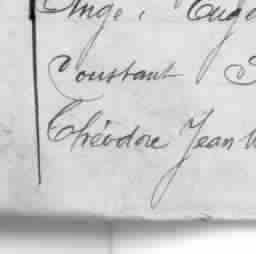 Ange,
Constant
Théodore Jean